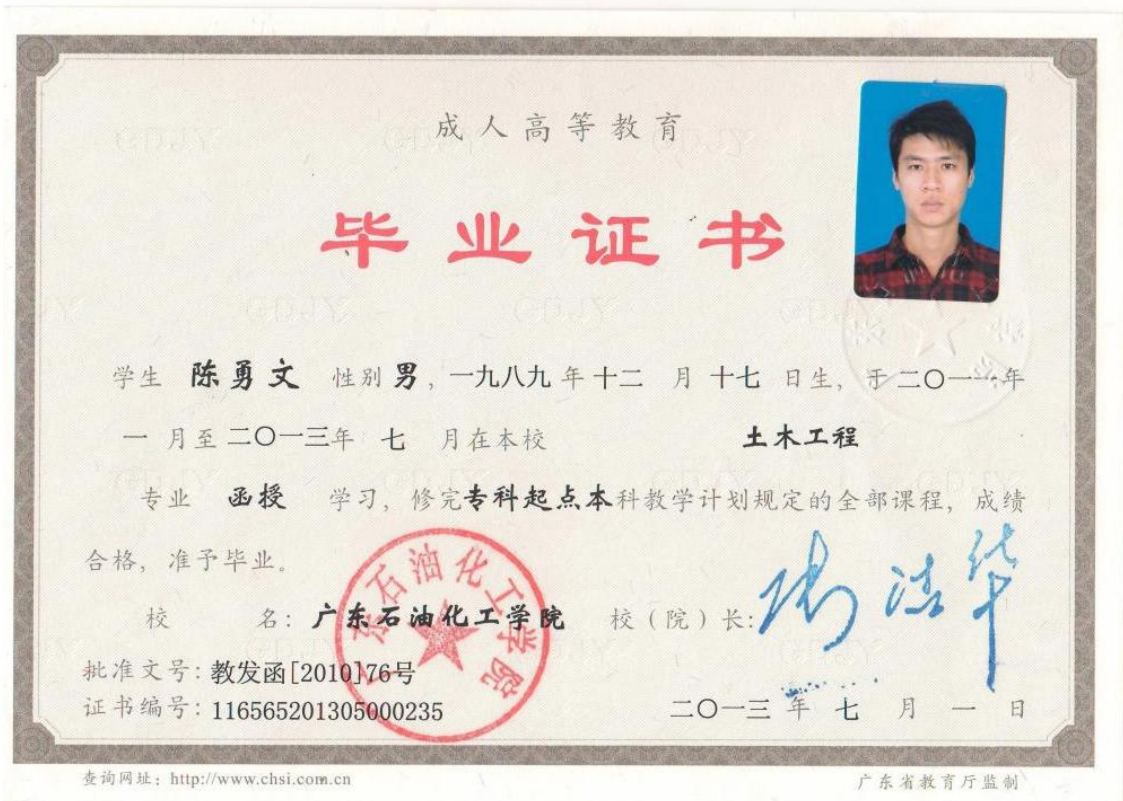 成人高等教育
毕业证书
学生 陈勇文 性别 男，一九八九 年 十二 月 十七 日生，于 二〇一一年
一 月至 二〇一三年 七 月在本校 土木工程
专业 函授 学习，修完专科起点本科教学计划规定的全部课程，成绩
合格，准予毕业。
校 名：广东石油化工学院 校（院）长：
批准文号：教发函[2010]76号
证书编号：116565201305000235
二〇一三 年 七 月 一 日
广东石油化工学院
查询网址：http://www.chsi.com.cn
广东省教育厅监制
GDJY